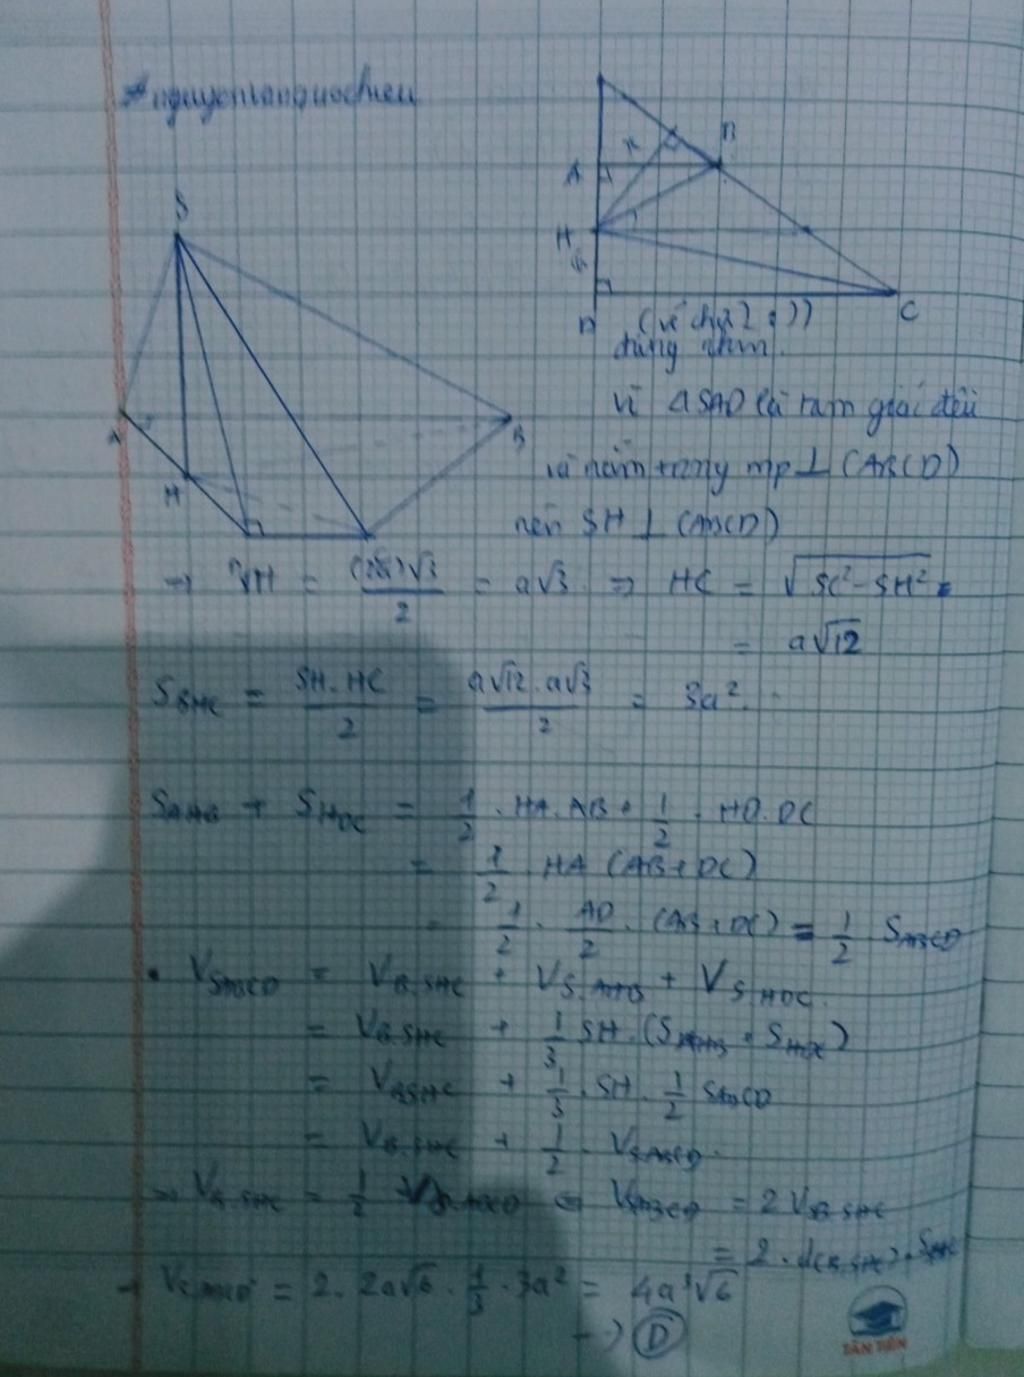 S
A
B
H
A
x
B
H
D
C
(vẽ
đúng
vì Δ SAD là tam giác đều
và nằm trong mp ⊥ (ABCD)
nên SH ⊥ (ABCD)
→ SH = (2a)√3 / 2 = a√3 ⇒ HC = √SC² - SH² =
= a√12
S SHC = SH.HC / 2 = a√12 . a√3 / 2 = 3a².
S AHB + S HDC = 1/2 . HA.AB + 1/2 . HD.DC
= 1/2 HA (AB+DC)
= 1/2 . AD/2 . (AB+DC) = 1/2 S ABCD
• V SABCD = V B.SHC + V S.AHB + V S.HDC.
= V B.SHC + 1/3 SH.(S AHB + S HDC)
= V B.SHC + 1/3 . SH . 1/2 S ABCD
= V B.SHC + 1/2 . V SABCD.
⇒ V B.SHC = 1/2 V S.ABCD ⇔ V SABCD = 2 V B.SHC
= 2 . d(B,SHC) . S SHC
→ V S.ABCD = 2. 2a√6 . 1/3 . 3a² = 4a³√6
→ D
TÂN TIẾN